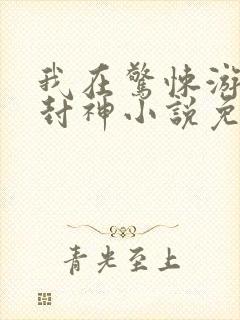 我在驚悚游
封神小說免
青光至上